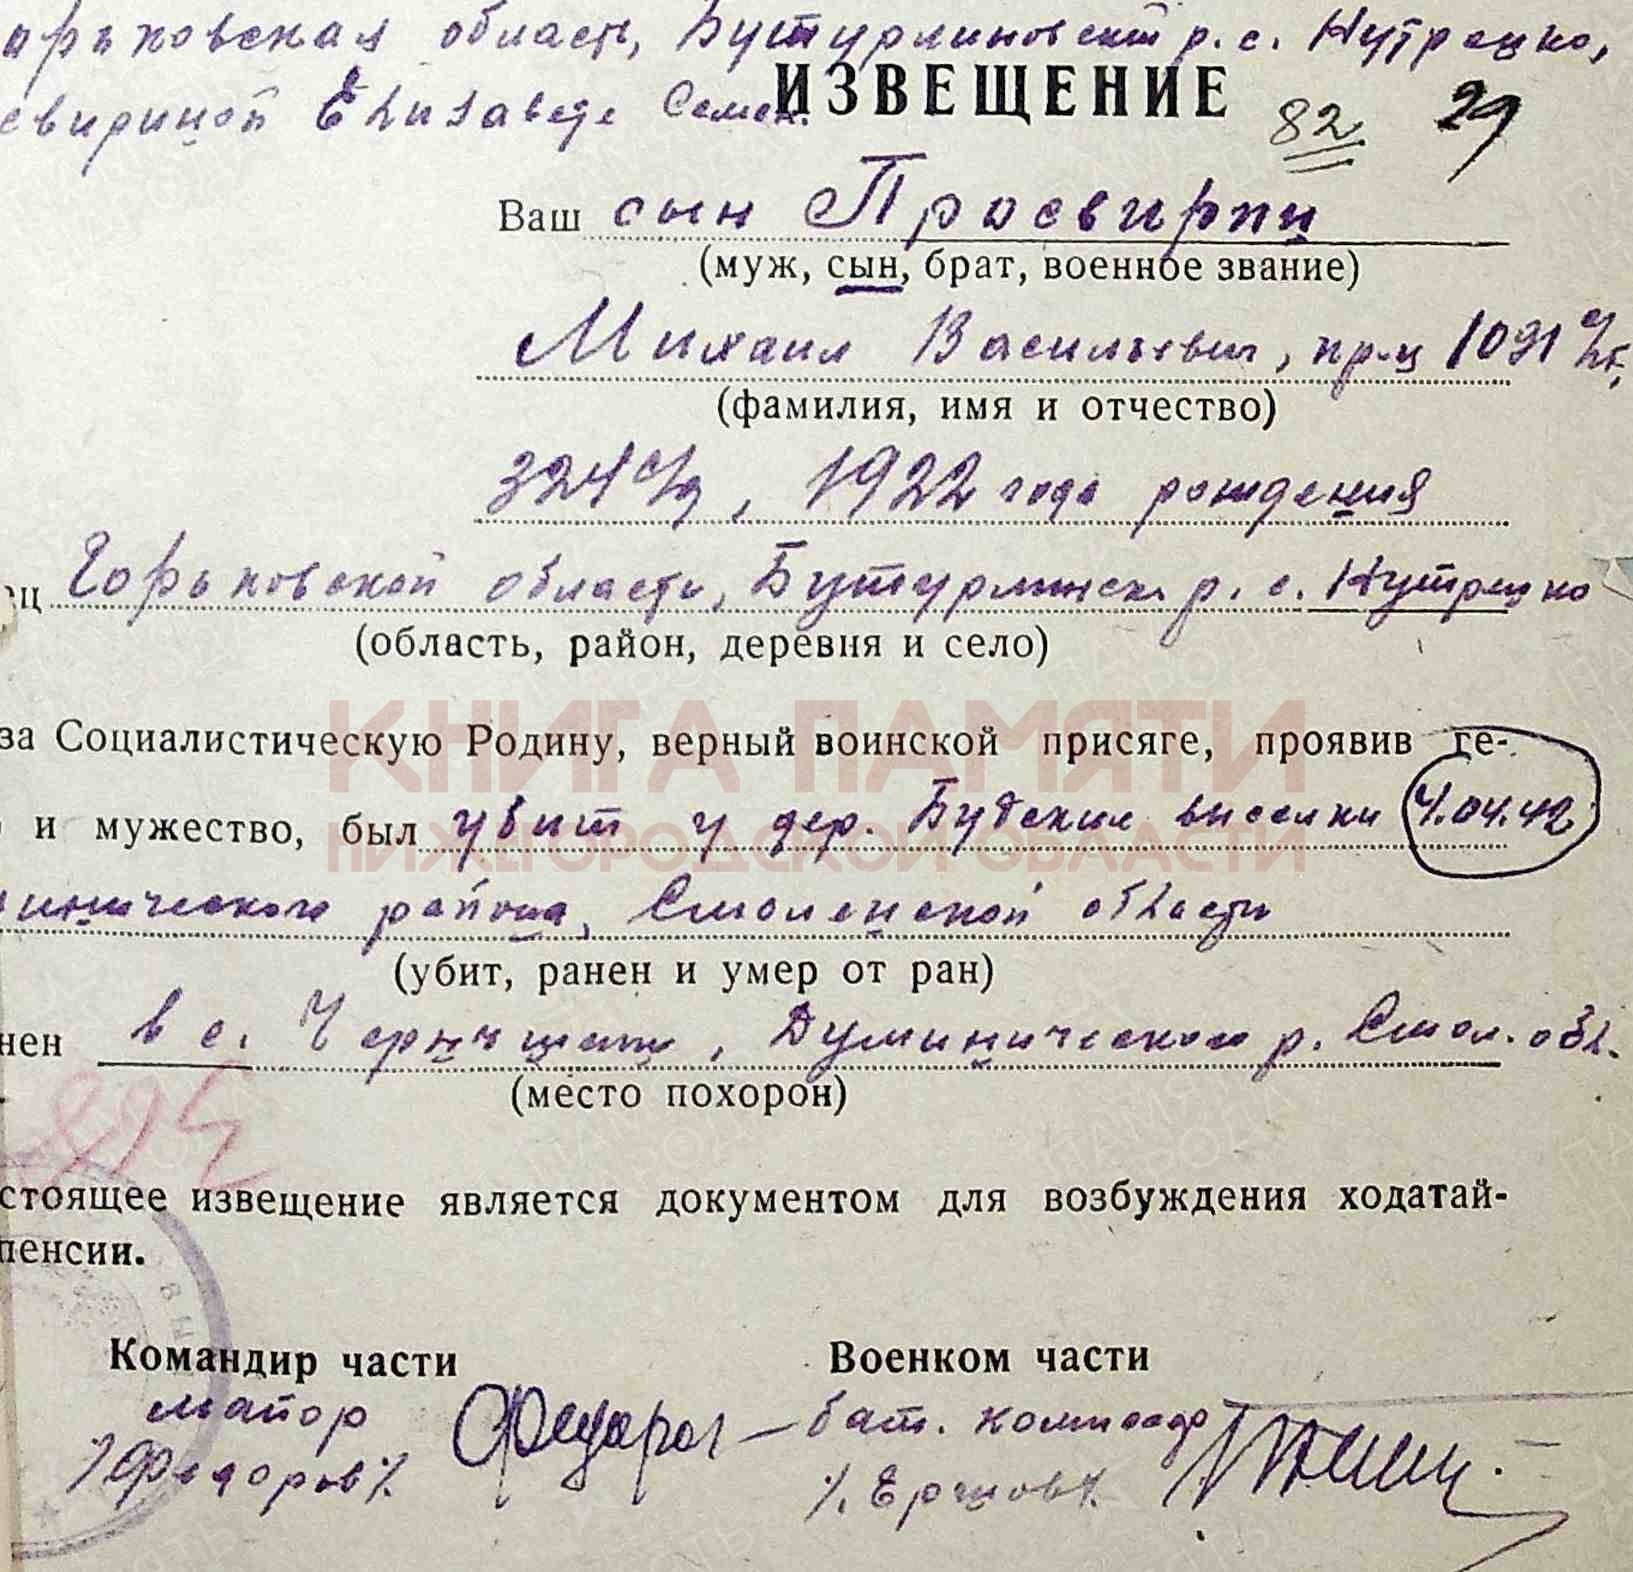 орьковская область, Бутурлиновский р. с. Нутрецко,
свириной Елизавете Семен.
ИЗВЕЩЕНИЕ
82 29
Ваш сын Просвирин
(муж, сын, брат, военное звание)
Михаил Васильевич, пр-ц 1091 с/п,
(фамилия, имя и отчество)
324 с/д, 1922 года рождения
ец Горьковской области, Бутурлинск. р. с. Нутрецко
(область, район, деревня и село)
за Социалистическую Родину, верный воинской присяге, проявив ге-
КНИГА ПАМЯТИ
и мужество, был убит у дер. Будские выселки 4.04.42
НИЖЕГОРОДСКОЙ ОБЛАСТИ
инического района, Смоленской области
(убит, ранен и умер от ран)
нен в с. Думинического р. Смол. обл.
(место похорон)
стоящее извещение является документом для возбуждения ходатай-
пенсии.
Командир части Военком части
майор Федоров — бат. комиссар
/Федоров/. /. Ершов/.